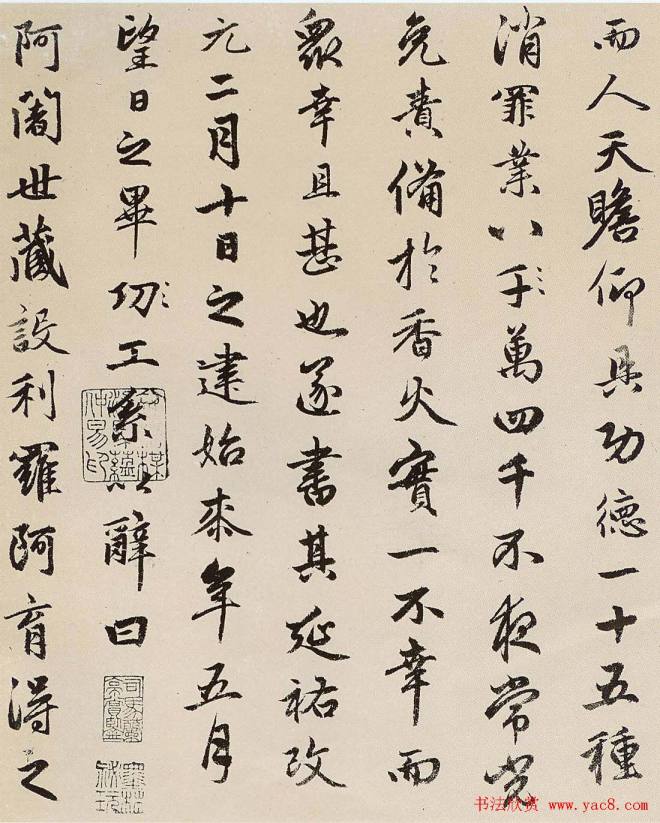 而人天瞻仰具功德一十五種
消罪業八千萬四千不夜常光
免責備於香火實一不幸而
眾幸且甚也遂書其延祐改
元二月十日之建始來年五月
望日之畢功工系以辭曰
阿闍世藏設利羅阿育得之
书法欣赏 www.yac8.com